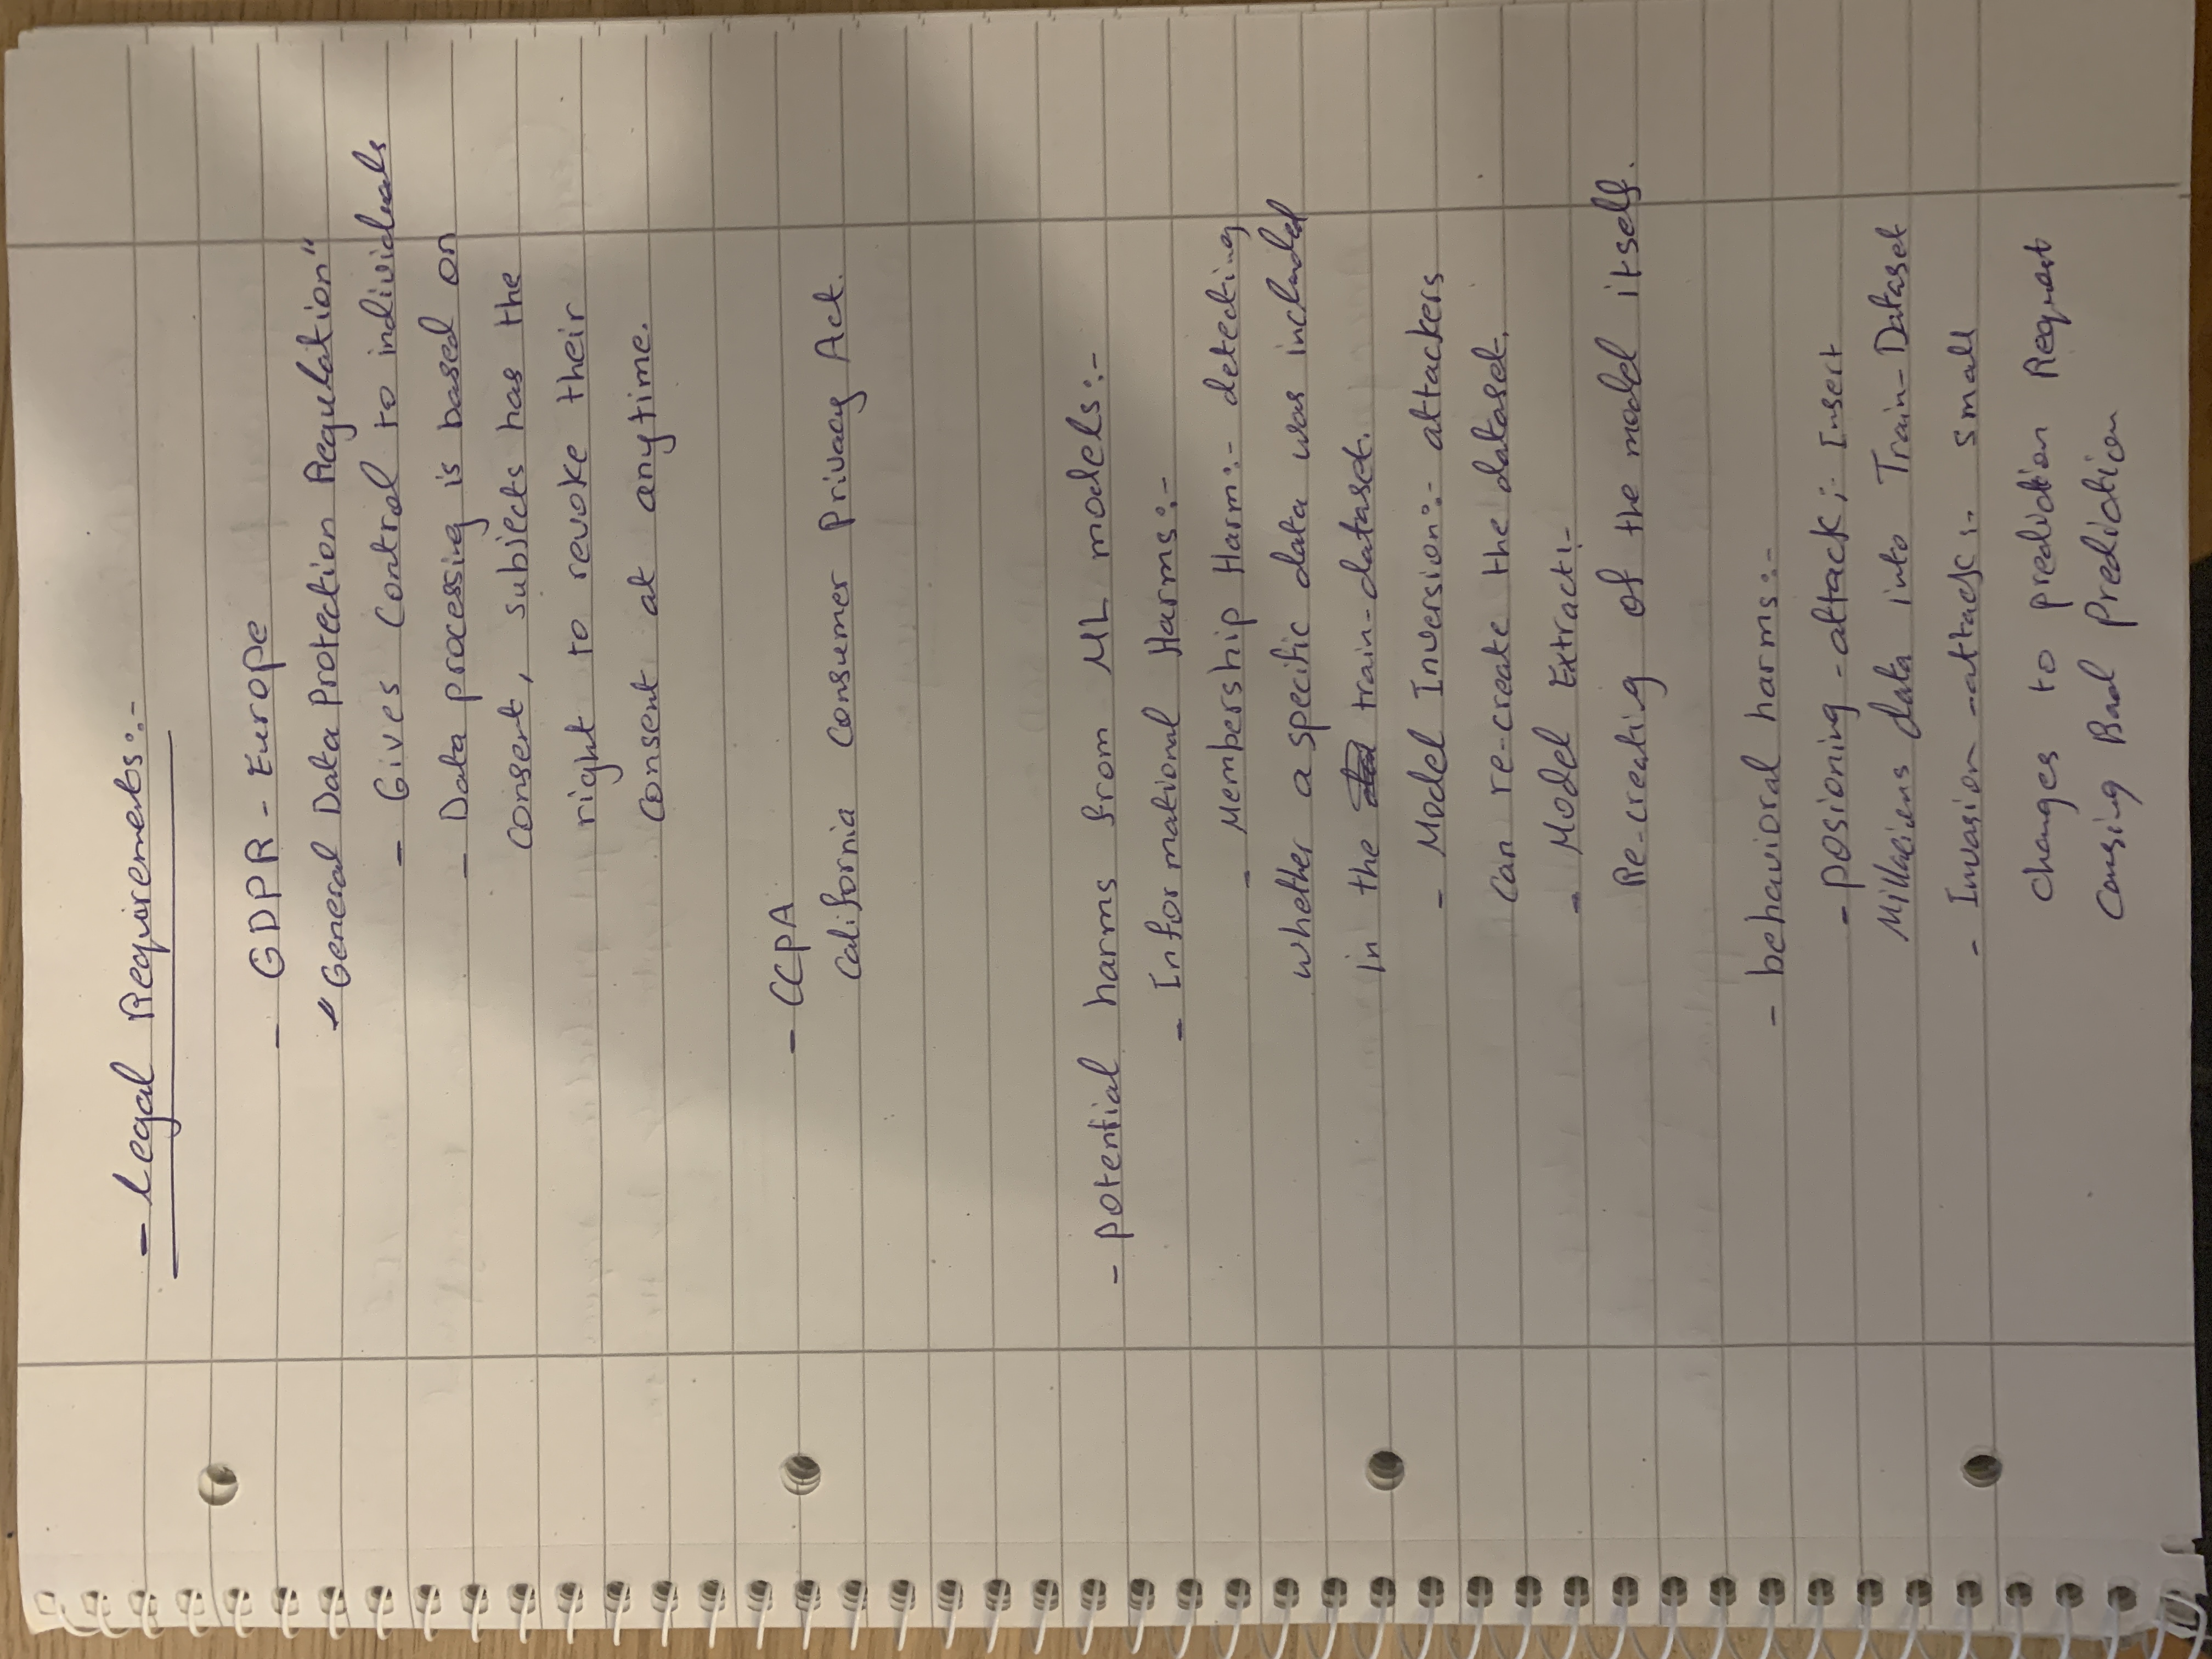 - Legal Requirements:-
- GDPR - Europe
"General Data Protection Regulation"
- Gives Control to individuals
- Data processing is based on
consent, subjects has the
right to revoke their
consent at anytime.
- CCPA
California Consumer Privacy Act.
- potential harms from ML models:-
- Informational Harms:-
- Membership Harm:- detecting
whether a specific data was included
in the train-dataset.
- Model Inversion:- attackers
can re-create the dataset.
- Model Extract:-
Re-creating of the model itself.
- behavioral harms:-
- posioning -attack:- Insert
data into Train-Dataset
- Invasion -attack:- small
changes to prediction Request
causing Bad Prediction